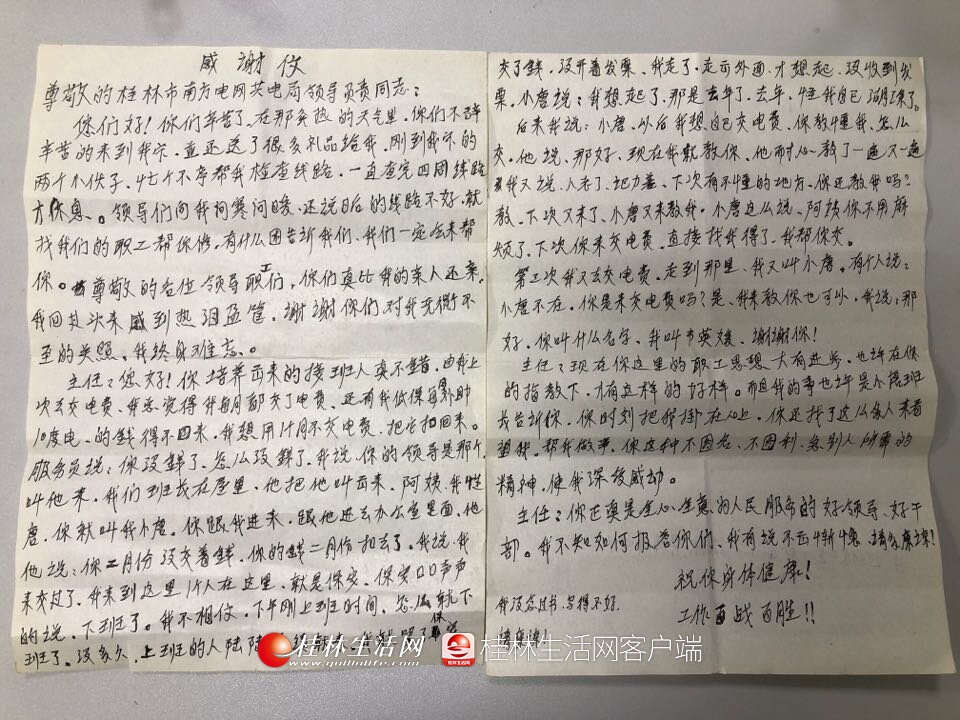 感谢仪
尊敬的桂林市南方电网供电局领导负责同志：
您们好！你们辛苦了，在那炎热的天气里，你们不辞
辛苦的来到我家，并还送了很多礼品给我，刚到我家的
两个小伙子，忙个不亭帮我检查线路，一直查完四周线路
才休息。领导们向我问寒问暖，还说日后的线路不好，就
找我们的职工帮你修，有什么困苦诉我们，我们一定会来帮
你。尊敬的各位领导职工们，你们真比我的亲人还亲，
我回其次来感到热泪盈筐，谢谢你们对我无微不
至的关照，我终身难忘。
主任：您好！你培养出来的接班人真不错，由我上
次去交电费，我总觉得我每月都交了电费，还有我低保每月补助
10度电，的钱得不回来，我想用1个月不交电费，把它扣回来。
服务员说：你没钱了，怎么没钱了，我说，你的领导是那个，
叫他来，我们班长在屋里，他把他叫出来，阿姨，我姓
唐，你就叫我小唐，你跟我进来，跟他进去办公室里面，他
他说：你二月份没交着钱，你的钱二月份扣去了，我说，我
来交过了，我来到这里1个人在这里，就是保安，保安口口声声
的说，下班了，我不相仪，下午刚上班时间，怎么就下
班了，没多久，上班的人陆陆
交了钱，没开着发票，我走了，走市外面，才想起，没收到发
票，小唐说：我想起了，那是去年了，去年，怪我自己胡涂了。
后来我说：小唐，以后我想自己交电费，你教懂我，怎么
交。他说，那好，现在我就教你。他耐心教了一遍又一遍
我又说，人老了，记力差，下次有不懂的地方，你还教我吗？
教，下次又来了，小唐又来教我，小唐这么说，阿姨你不用麻
烦了，下次你来交电费，直接找我得了，我帮你交。
第三次我又去交电费，走到那里，我又叫小唐。有个人说：
小唐不在，你是来交电费吗？是，我来教你也可以，我说，那
好，你叫什么名字，我叫韦英媛，谢谢你！
主任：现在你这里的职工思想大有进步，也许在你
的指教下，才有这样的好样。而且我的事也许是小唐班
长告诉你，你时刻把我掛在心上，你还找了这么多人来看
望我，帮我做事，你这种不图名、不图利、急别人所需的
精神，使我深受感动。
主任：你正真是全心全意为人民服务的好领导、好干
部。我不知如何报答你们，我有说不出的惭愧，请多原谅！
祝你身体健康！
工作百战百胜!!
我没念过书，写得不好，
请原谅！
桂林生活网
www.guilinlife.com
桂林生活网
桂林生活网客户端